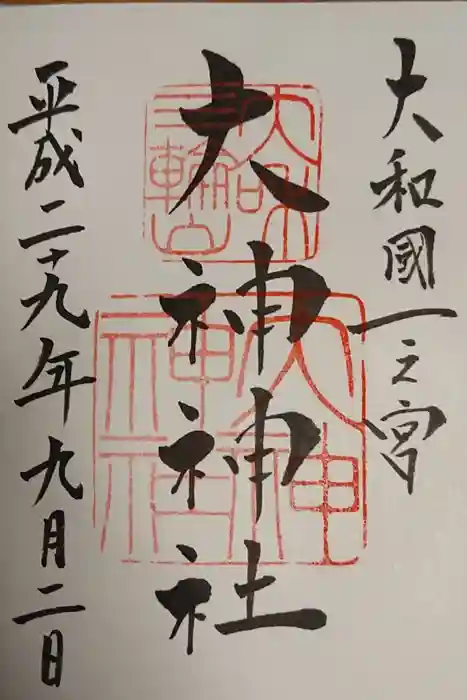 大和國一之宮
大神神社
平成二十九年九月二日
大和
三輪山
大神
神社